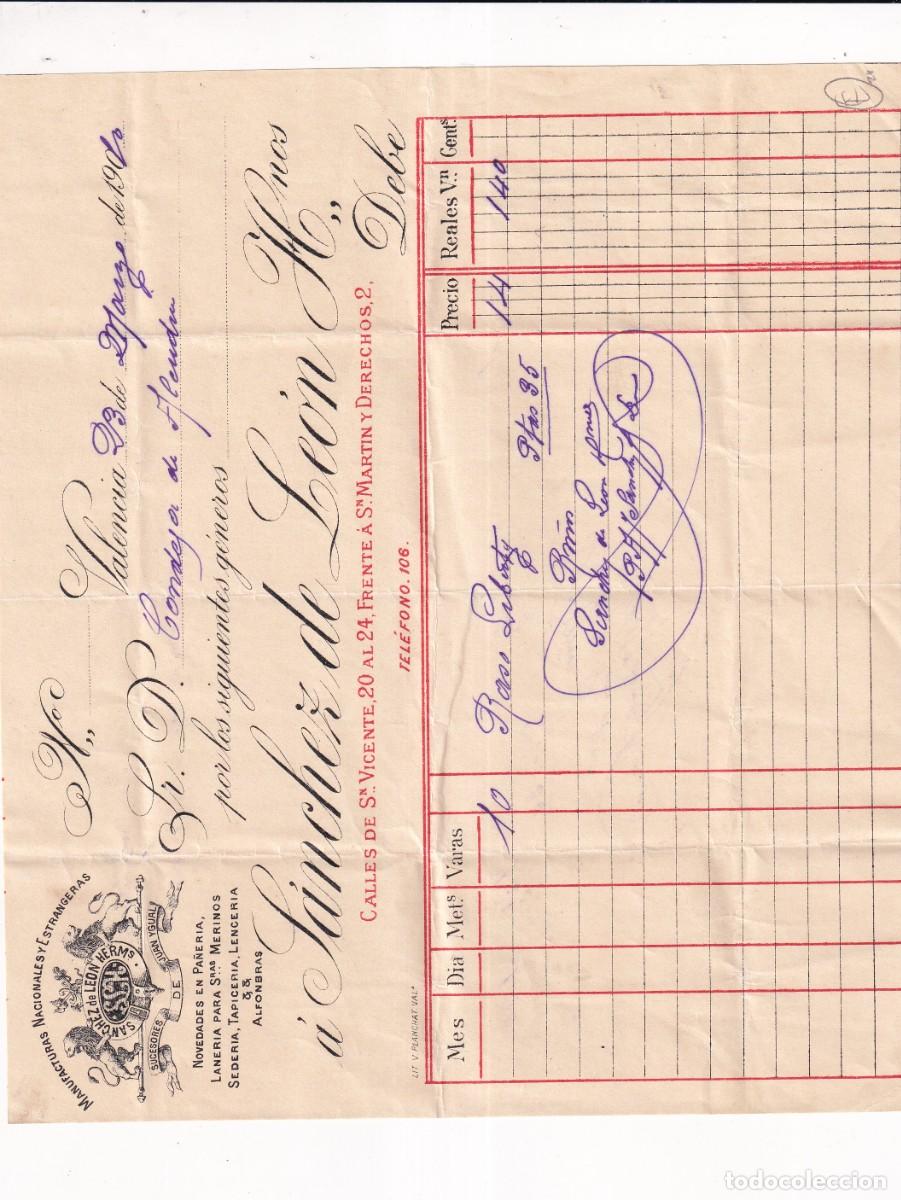 MANUFACTURAS NACIONALES Y ESTRANGERAS
SÁNCHEZ de LEÓN HERMS.
SUCESORES DE JUAN YGUAL
NOVEDADES EN PAÑERIA,
LANERIA PARA SRAS MERINOS
SEDERIA, TAPICERIA, LENCERIA
& &
ALFONBRAS
Valencia 23 de Marzo de 190
Sr. D. Condesa de
por los siguientes géneros
á Sánchez de León H,,nos
CALLES DE SN. VICENTE, 20 AL 24, FRENTE Á SN. MARTIN Y DERECHOS, 2,
TELÉFONO. 106.
Debe
LIT. V. PLANCHAT. VALA
Mes Dia Mets. Varas Precio Reales Vn. Cents.
10 Raso Liberty 14 140
Ptas 35
Sanchez de Leon Hnos
todocoleccion